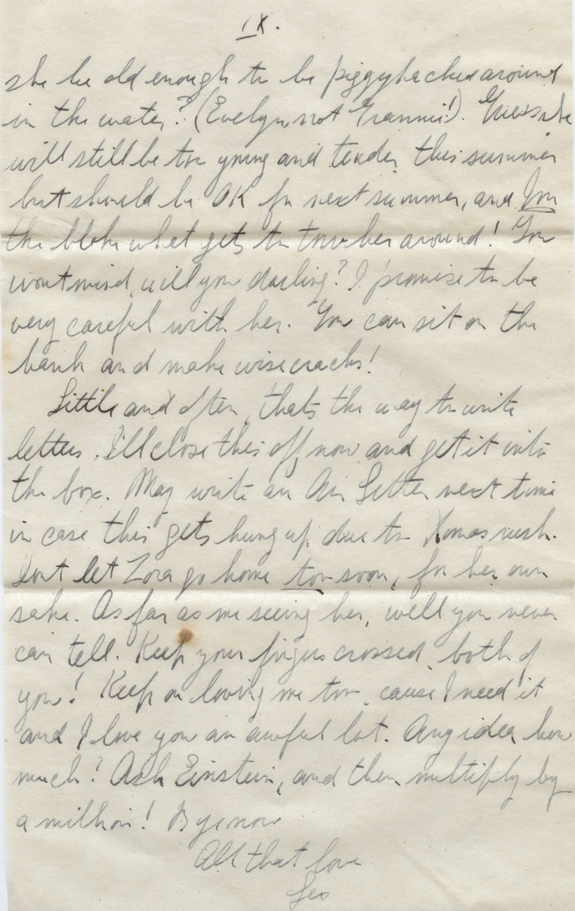 IX.
she be old enough to be piggybacked around
in the water? (Evelyn not Grannie!). Guess she
will still be too young and tender this summer
but should be OK for next summer, and I'm
the bloke what gets to tow her around! You
wont mind, will you darling? I promise to be
very careful with her. You can sit on the
bank and make wisecracks!
Little and often, thats the way to write
letters. I'll close this off now and get it into
the box. May write an Air Letter next time
in case this gets hung up due to Xmas rush.
Dont let Zora go home too soon, for her own
sake. As far as me seeing her, well you never
can tell. Keep your fingers crossed, both of
you! Keep on loving me too, cause I need it
and I love you an awful lot. Any idea how
much? Ask Einstein, and then multiply by
a million! Bye now
All that love
Les